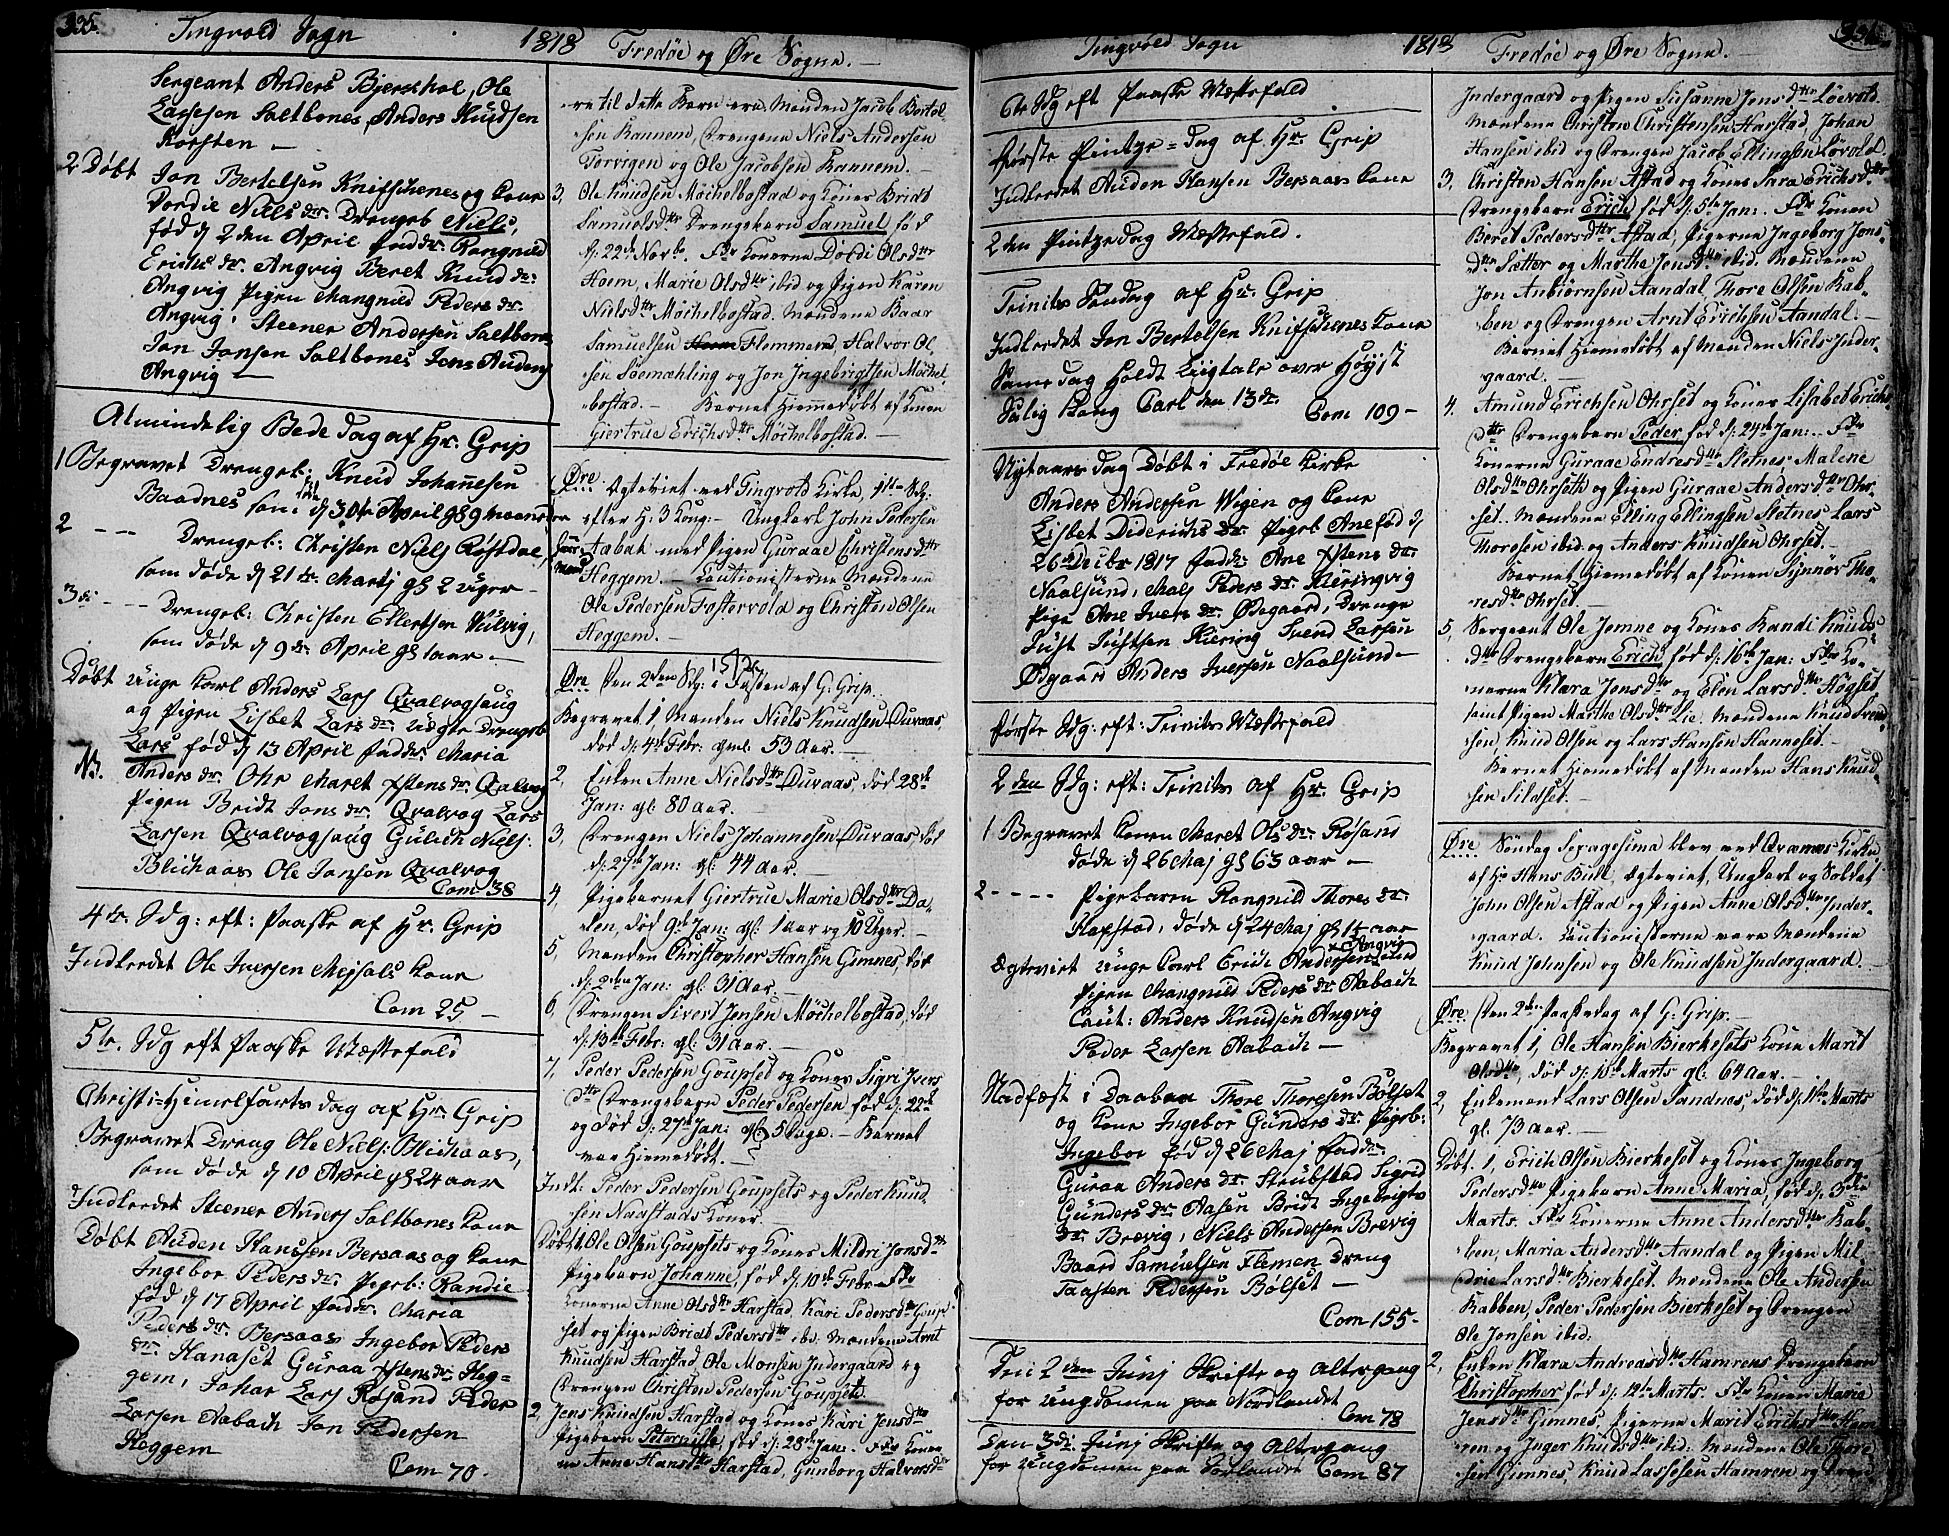 335.
Tingvold Sogn
1818
Fredøe og Øre Sogne. —
Sergeant Anders Bjerschol, Ole
Larsen Saltbones, Anders Knudsen
Korsten —
2 Døbt Jon Bertelsen Knifschenes og Kone
Dordie Niels dr. Drengeb Niels,
fød d 2den April fadr: Rangnild
Erichs dr. Angvig Beret Knud dr:
Angvig Pigen Mangnild Peders dr.
Angvig, Steener Andersen Saltbone
Jon Jonsen Saltbones Jens Audens
Angvig —
Almindelig Bede Dag af Hr. Grip
1 Begravet Drengeb: Knud Johannesen
Baadnes som døde d 30te April gl 9 maaneder
2 — — Drengeb: Christen Niels Røstdae,
som døde d 21de Martj gl 2 uger —
3de — — Drengeb: Christen Ellertsen Vulvig,
som døde d 9de April gl 1 aar —
Døbt Unge Karl Anders Lars Qvalvogsaug
og Pigen Lisbet Lars dr: Uægte Drengeb
Lars fød d 13 April fadr: Maria
N. Anders dr. Ohr Maret Xstens dr: Qvalvog
Pigen Bridt Jons dr: Qvalvog Lars
Larsen Qvalvogsaug Gulich Niels:
Blichaas Ole Jonsen Qvalvog
Com 38
4de Sdg: eft: Paaske af Hr. Grip
Indledet Ole Iversen Mejsals Kone
Com 25 —
5te. Sdg eft Paaske Messefald
Christi-Himelfarts Dag af Hr. Grip
Begravet Dreng Ole Niels: Blichaas,
som døde d 10 April gl 24 aar
Indledet Steener Anders Saltbones Kone
Døbt Auden Hansen Bersaas og Kone
Ingebor Peders dr. Pigeb: Randie
fød d 17 April fadr: Maria
Peders dr. Bersaas Ingebor Peders
dr. Hanaset Guraa Xstens dr: Heg=
gem, Johan Lars Røsand Peder
Larsen Aabach Jon Pedersen
Heggem
Com 70.
-re til dette Barn ere, Manden Jacob Bertel-
-sen Rannem, Drengene Niels Andersen
Torvigen og Ole Jacobsen Rannem. —
3, Ole Knudsen Møchelbostad og Kones Bridt
Samuelsdtr Drengebarn Samuel fød
d: 22de Novbr. Fdr Konerne Dordi Olsdtr
Hoem, Marie Olsdtr ibid og Pigen Karen
Nielsdtr Møchelbostad. Mændene Baar
Samuelsen Flemmen, Halvor Ol-
-sen Søemæhling og Jon Ingebrigtsen Møchel-
-bostad. — Barnet Hiemmedøbt af Konen
Giertrue Erichsdtr Møchelbostad. —
Øre. Egteviet ved Tingvold Kirke, 1ste Sdg:
efter H: 3 Kong: — Ungkarl John Pedersen
Aabak med Pigen Guraae Christensdtr
Heggem. — Cautionisterne Mændene
Ole Pedersen Fostervold og Christen Olsen
Heggem. —
Øre Den 2den Sdg: i Fasten af G: Grip.
Begravet 1, Manden Niels Knudsen Duraas,
død d: 4de Febr: gml: 53 Aar. —
2, Enken Anne Nielsdtr Duraas, død 28de
Jan: gl: 80 aar. —
3, Drengen Niels Johannesen Duraas, død
d: 27de Jan: gl: 44 aar. —
4, Pigebarnet Giertrue Marie Olsdtr Da-
len, død 9de Jan: gl: 1 aar og 10 Uger. —
5, Manden Christopher Hansen Gimnes, død
d: 2den Jan: gl: 31 Aar. —
6, Drengen Sivert Jensen Møchelbostad, død
d: 13de Febr: gl: 31 aar. —
7, Peder Pedersen Goupset og Kones Sigri Ivers
dtr Drengebarn Peder Pedersen fød d: 22de
og død d: 27de Jan: gl: 5 Dage. — Barnet
var Hiemedøbt. —
Indl: Peder Pedersen Goupsets og Peder Knud-
sen Naastads Koner.
Døbt 1, Ole Olsen Goupsets og Kones Mildri Jonsdtr
Pigebarn Johanne, fød d: 10de Febr Fdr
Konerne Anne Olsdtr Harstad, Kari Pedersdtr Goup-
set og Pigen Bridt Pedersdtr ibd. Mændene Arnt
Knudsen Harstad, Ole Monsen Indergaard og
Drengen Christen Pedersen Goupset.
2, Jens Knudsen Harstad og Kones Kari Jensdtr
Pigebarn Peternille, fød d: 28de Jan: Fdr Koner-
ne Anne Hansdtr Harstad, Gunborg Halvorsdtr
336.
Tingvold Sogn
1818
Fredøe og Øre Sogne. —
6te Sdg eft Paaske Messefald
Første Pintze=dag af Hr. Grip
Indledet Auden Hansen Bersaas Kone
2den Pintzedag Messefald.
Trinitis Søndag af Hr. Grip
Indledet Jon Bertelsen Knifschenes Kone
Same dag Holdt Liigtale over Høyst
Salig Kong Carl den 13de
Com 109 —
Nytaars dag Døbt i Fredøe Kirke
Anders Andersen Wigen og Kone
Lisbet Diderichs dr. Pigeb Ane fød d
26 Decbr 1817 fadr: Ane Xstens dr:
Naalsund, Mals Peders dr: Kleringvig
Pige Ane Ivers dr. Ødegaard, Drenge
Just Justsen Kiering Svend Larsen
Ødgaard Anders Iversen Naalsund —
Første Sdg: eft: Trinitis Messefald
2den Sdg: eft: Trinitis af Hr. Grip
1 Begravet Konen Maret Ols dr: Røsand
døde d 26 Maj gl 63 aar —
2 - - - - Pigebaren Rangnild Thores dr:
Hapstad, døde d 24 Maj gl 1½ aar
Egteviet Unge Karl Erich Andersen Angvig
Pigen Mangnild Peders dr Aabach
Caut: Anders Knudsen Angvig
Peder Larsen Aabach —
Stadfæst i Daaben Thore Thoresen Bølset
og Kone Ingebor Gunders dr: Pigeb:
Ingebor fød d 26 Maj fadr:
Guraa Anders dr. Straubstad Sigrid
Gunders dr: Aasen Bridt Ingebrigts
dr. Brevig, Niels Andersen Brevig
Baard Samuelsen Flemen Dreng
Taasten Pedersen Bølset —
Com 155 —
Den 2den Junj Skrifte og Altergang
for Ungdomen paa Nordlandet
Com 78
Den 3die Junj Skrifte og Altergang
for Ungdomen paa Sørlandet Com 87
Indergaard og Pigen Susanne Jensdtr Løevold.
Mændene Christen Christensen Harstad, Johan
Hansen ibid og Drengen Jacob Ellingsen Løvold.
3, Christen Hansen Astad og Kones Sara Erichsdtr
Drengebarn Erich fød d: 5te Jan: Fdr Konen
Beret Pedersdtr Astad, Pigerne Ingeborg Jons-
dtr Sætter og Marthe Jensdtr ibid. Mændene
Jon Anbiørnsen Aandal, Thore Olsen Rab-
ben og Drengen Arnt Erichsen Aandal. —
Barnet Hiemedøbt af Manden Niels Inder-
gaard. —
4. Amund Erichsen Ohrset og Kones Lisabet Erichs
dtr Drengebarn Peder fød d: 24de Jan: Fdr
Konerne Guraae Endresdtr Sletnes, Malene
Olsdtr Ohrseth og Pigen Guraae Andersdtr Ohr-
set. Mændene Elling Ellingsen Sletnes Lars
Thoresen ibid og Anders Knudsen Ohrset. —
Barnet Hiemedøbt af Konen Synnøv Tho-
resdtr Ohrset. —
5, Sergeant Ole Jemne og Kones Randi Knuds-
dtr Drengebarn Erich, fød d: 16de Jan: Fdr Ko-
nerne Klara Jensdtr og Elen Larsdtr Høgset
samt Pigen Marthe Olsdtr Lie. Mændene Knud Svend
sen, Knud Olsen og Lars Hansen Hanneset. —
Barnet Hiemedøbt af Manden Hans Knud-
sen Sildset. —
Øre. Søndag Sexagesima blev ved Qværnes Kirke
af Hr. Hans Bull, Egteviet, Ungkarl og Soldat
John Olsen Astad og Pigen Anne Olsdtr Inder-
gaard. Cautionisterne vare Mændene
Knud Johnsen og Ole Knudsen Indergaard
Øre. Den 2den Paaskedag af G: Grip. —
Begravet 1, Ole Hansen Bierkesets Kone Marit
Olsdtr, død d: 10de Marts gl: 64 Aar. —
2, Enkemand Lars Olsen Sandnes, død d: 11te Marts
gl: 73 aar. —
Døbt. 1, Erich Olsen Bierkeset og Kones Ingeborg
Pedersdtr Pigebarn Anne Maria, fød d: 3die
Marts. Fdr Konerne Anne Andersdtr Rab-
ben, Maria Andersdtr Aandal og Pigen Mil-
drie Larsdtr Bierkeset. Mændene Ole Andersen
Rabben, Peder Pedersen Bierkeset og Drengen
Ole Jensen ibid:
2, Enken Klara Andreasdtr Hamrens Drengebarn
Christopher fød d: 12te Marts. Fdr Konen Marie
Jensdtr Gimnes, Pigerne Marit Erichsdtr Ham-
ren og Inger Knudsdtr ibid: Mændene Ole Thore
sen Gimnes, Knud Lassesen Hamren og